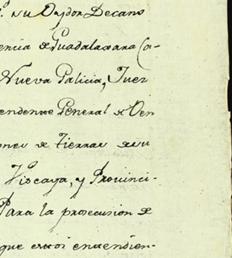 su Oydor Decano
encia de Guadalaxara Ca-
Nueva Galicia, Juez
endente General de Ven
ones de tierras de su
Viscaya, y Provinci-
Para la prosecusion de
que estoi entendien-